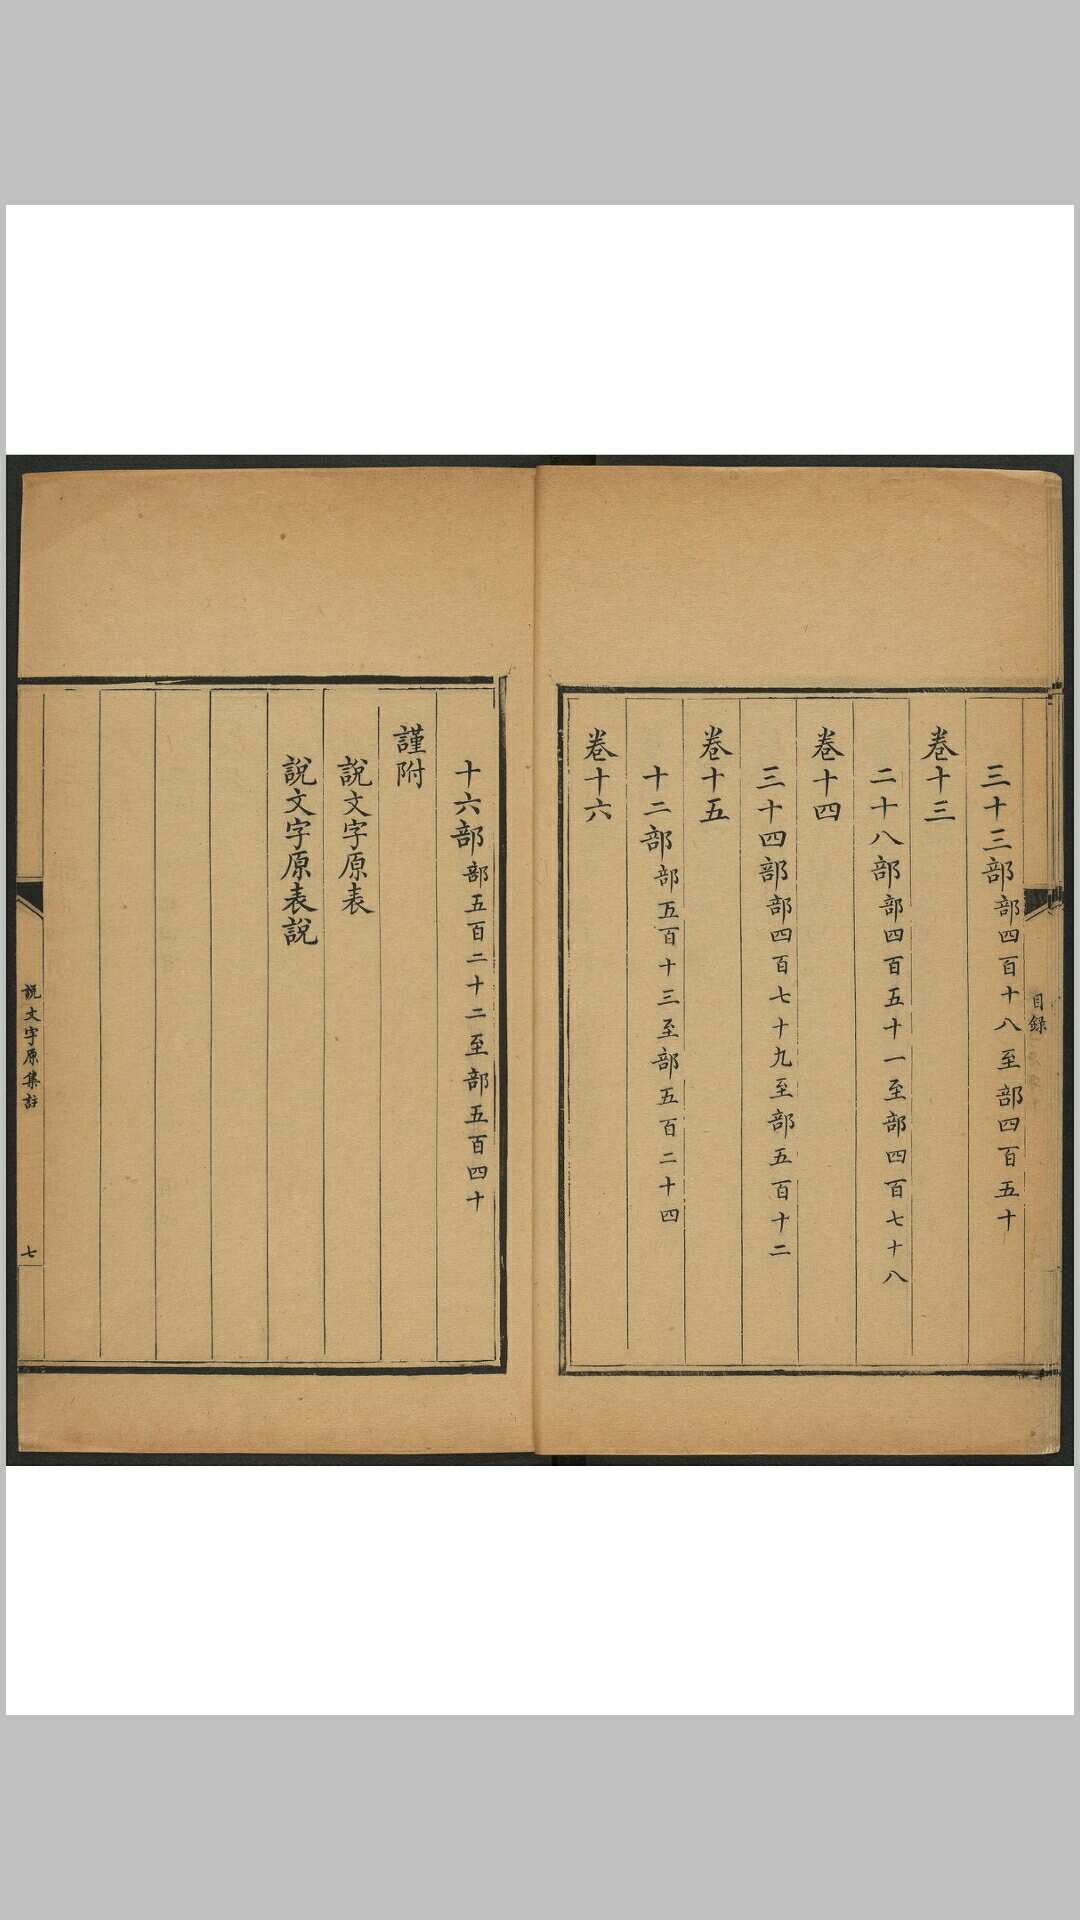 目錄
三十三部部四百十八至部四百五十
卷十三
二十八部部四百五十一至部四百七十八
卷十四
三十四部部四百七十九至部五百十二
卷十五
十二部部五百十三至部五百二十四
卷十六
十六部部五百二十二至部五百四十
謹附
說文字原表
說文字原表說
說文字原集註
七